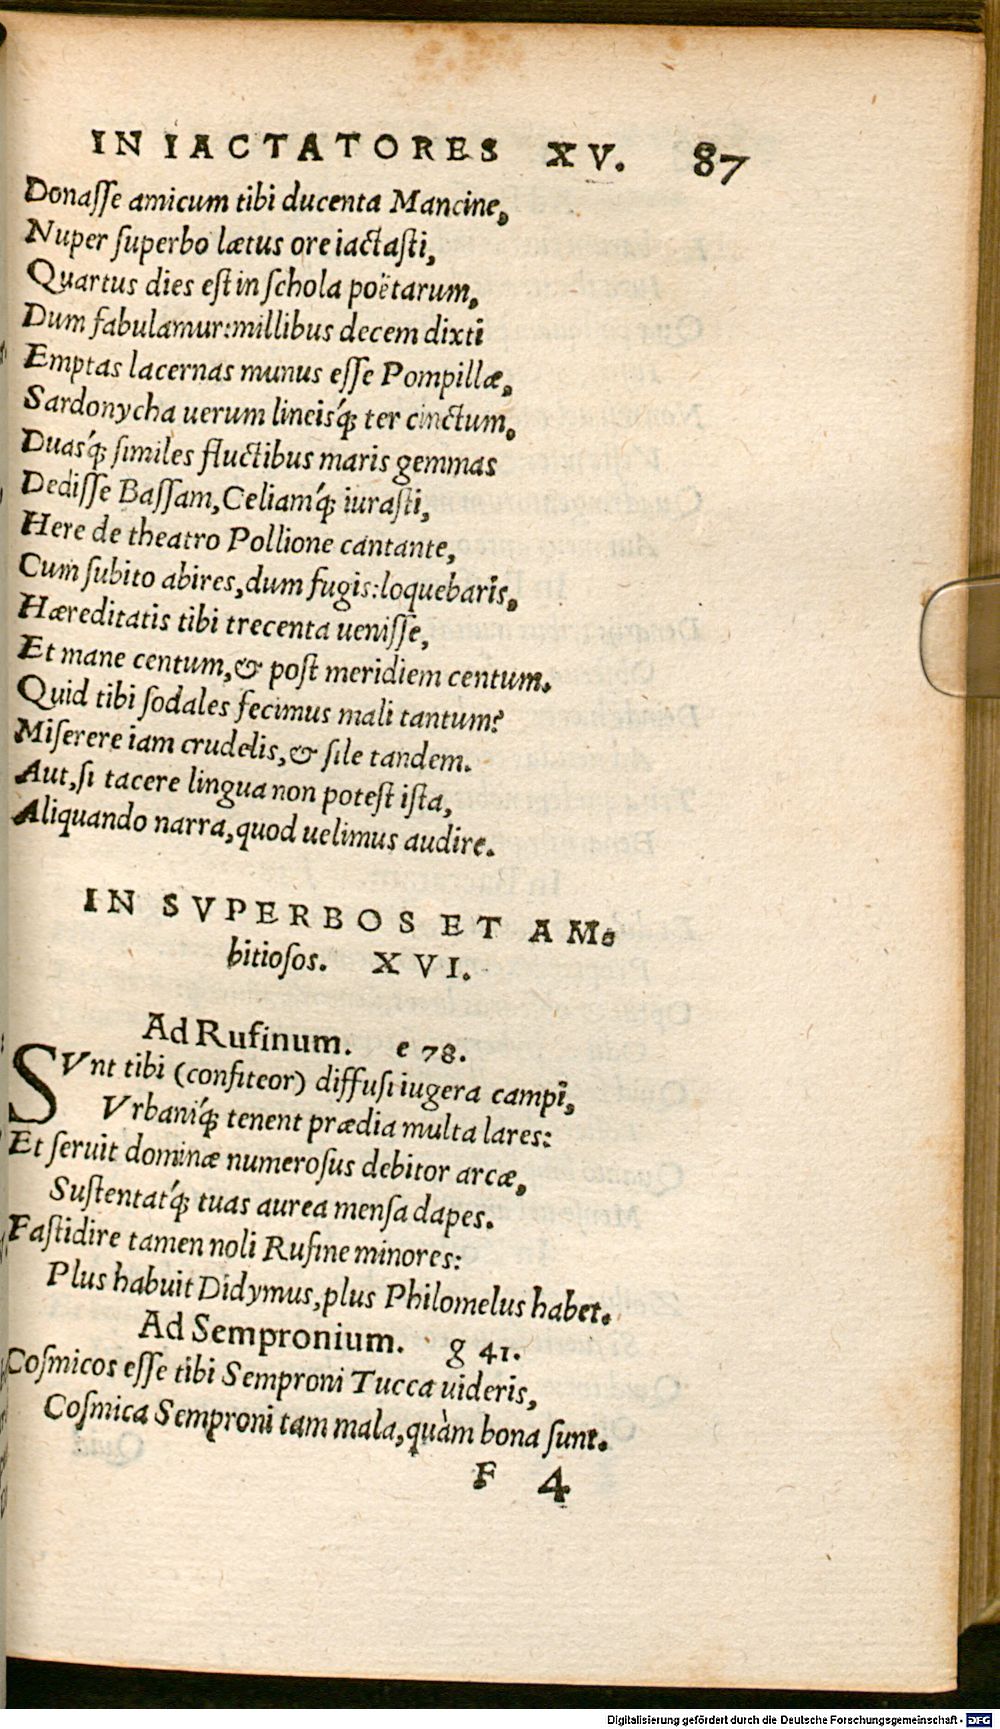 IN IACTATORES XV. 87
Donaſſe amicum tibi ducenta Mancine,
Nuper ſuperbo lætus ore iactaſti,
Quartus dies eſt in ſchola poëtarum,
Dum fabulamur:millibus decem dixti
Emptas lacernas munus eſſe Pompillæ,
Sardonycha uerum lineisq́; ter cinctum,
Duasq́; ſimiles fluctibus maris gemmas
Dediſſe Baſſam,Celiamq́; iuraſti,
Here de theatro Pollione cantante,
Cum ſubito abires,dum fugis:loquebaris,
Hæreditatis tibi trecenta ueniſſe,
Et mane centum,& poſt meridiem centum.
Quid tibi ſodales fecimus mali tantum?
Miſerere iam crudelis,& ſile tandem.
Aut,ſi tacere lingua non poteſt iſta,
Aliquando narra,quod uelimus audire.
IN SVPERBOS ET AM-
bitioſos. XVI.
Ad Rufinum. e 78.
SVnt tibi (confiteor) diffuſi iugera campi,
Vrbaniq́; tenent prædia multa lares:
Et ſeruit dominæ numeroſus debitor arcæ,
Suſtentatq́; tuas aurea menſa dapes.
Faſtidire tamen noli Rufine minores:
Plus habuit Didymus,plus Philomelus habet.
Ad Sempronium. g 41.
Coſmicos eſſe tibi Semproni Tucca uideris,
Coſmica Semproni tam mala,quàm bona ſunt.
F 4
Digitalisierung gefördert durch die Deutsche Forschungsgemeinschaft - DFG